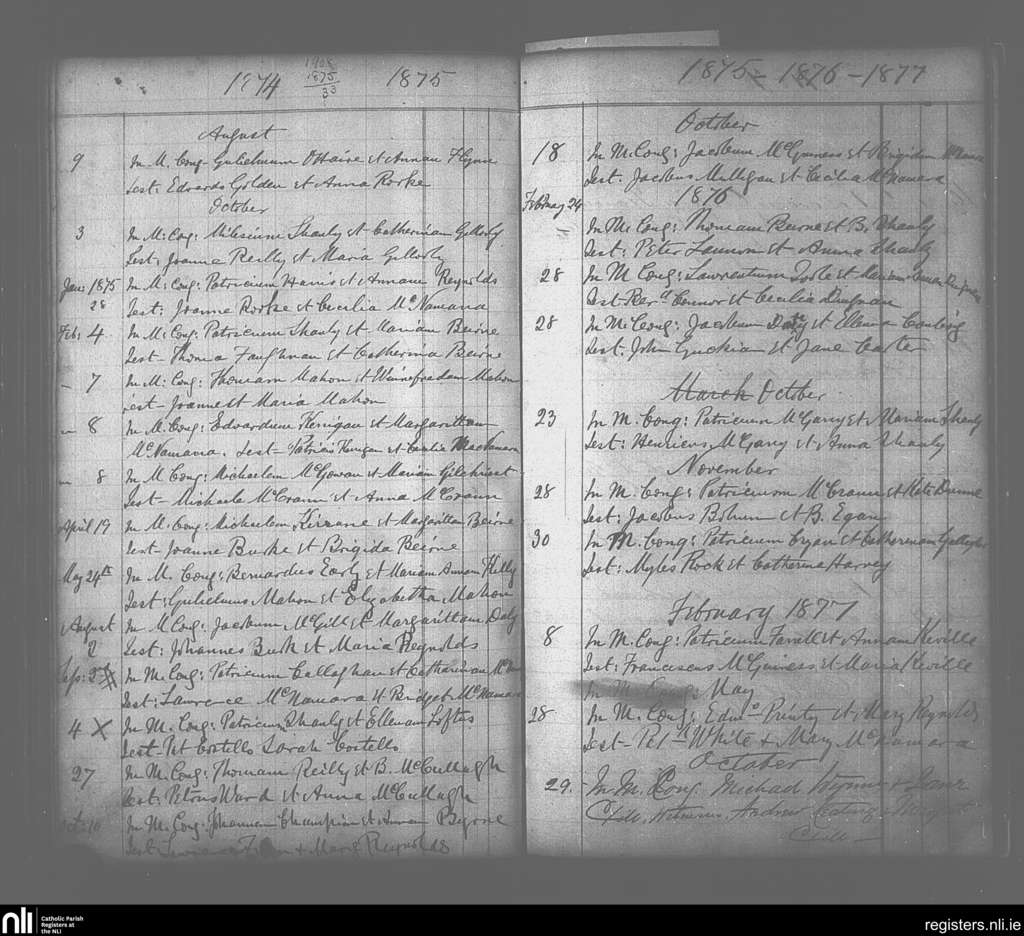 1874
1908
1875
33
1875
August
9 In M. Cong. Gulielmum et Annam Flynn
Test: Edwardo Golden et Anna Rorke
October
3 In M: Cong: Shanly et Catherinam
Test: Joanne Reilly et Maria
Jan: 1875 In M: Cong: Patricium Harris et Annam Reynolds
28 Test: Joanne Rorke et Cecilia McNamara
Feb: 4 In M: Cong: Patricium Shanly et Mariam Beirne
Test- Thoma Faughnan et Catherina Beirne
— 7 In M: Cong: Thomam Mahon et Winnefredam Mahon
Test- Joanne et Maria Mahon
— 8 In M. Cong: Edwardum Kerrigan et Margarittam
McNamara. Test- Patricis Kerigan et Cecilia MacNamara
— 8 In M Cong: Michaelem McGowan et Mariam Gilchrist
Test- Michaele McCrann et Anna McCrann
April 19 In M. Cong: Michaelem Kirrane et Margarittam Beirne
Test- Joanne Burke et Brigida Beirne
May 24th In M. Cong: Bernardus Early et Mariam Annam Kelly
Test: Gulielmus Mahon et Elizabetha Mahon
August In M Cong: Jacobum McGill et Margarittam Daly
2 Test: Johannes Busk et Maria Reynolds
Sep: In M. Cong: Patricium Callaghan et Catharinam
Test: Lawrence McNamara et Bridget McNamara
4 X In M. Cong: Patricium Shanly et Ellenam Loftus
Test- Pat Costello Sarah Costello
27 In M. Cong: Thomam Reilly et B. McCullagh
Test: Petrus Ward et Anna McCullagh
Oct: 10 In M. Cong: Johannem Champion et Annam Byrne
Test: + Mary Reynolds
1875 - 1876 - 1877
October
18 In M. Cong: Jacobum McGuiness et Brigidam
Test: Jacobus Mulligan et Cecilia McNamara
February 24 1876
— In M. Cong: Thomam Burne et B. Shanly
Test: Peter et Anna Shanly
28 In M Cong: Lawrentium Toole et Mariam Dugnan
Test- Connor et Cecilia Dugnan
28 In M. Cong: Jacobum Daly et Ellena
Test: John Guckian et Jane Carter
March October
23 In M. Cong: Patricium McGarry et Mariam Shanly
Test: Henricus McGarry et Anna Shanly
November
28 In M. Cong: Patricium McCrann et Kate Dunne
Test: Jacobus Bohan et B. Egan
30 In M. Cong: Patricium Cryan et Catherinam
Test: Myles Rock et Catherina Harvey
February 1877
8 In M. Cong: Patricium Farrell et Annam Keville
Test: Franciscus McGuiness et Maria Keville
In M Cong: May
28 In M. Cong: Edmo Printy et Mary Reynolds
Test- Pet White + May McNamara
October
29. In M. Cong Michael Wynne +
Witness Andrew Keating +
nli Catholic Parish
Registers at
the NLI
registers.nli.ie